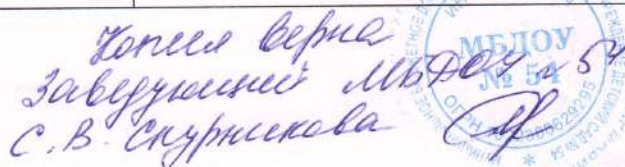 Копия верна
Заведующий МБДОУ № 54
С. В. Скурникова
МБДОУ
№ 54